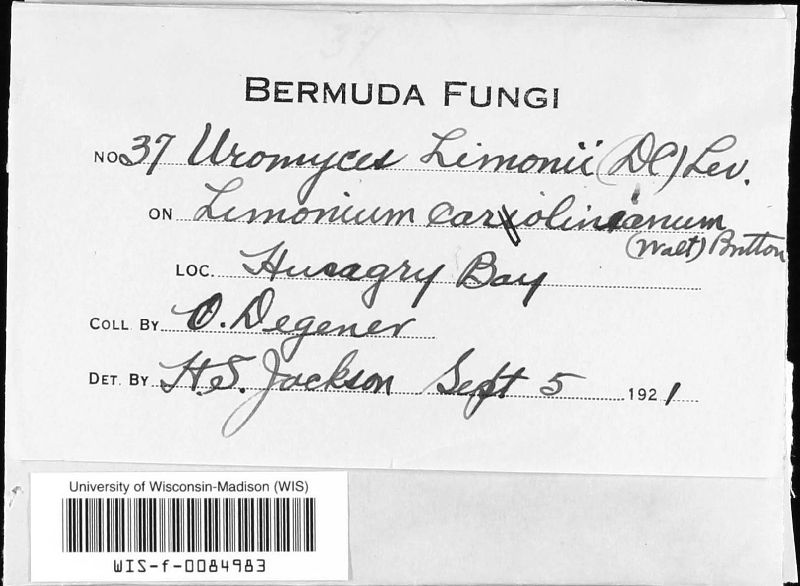 BERMUDA FUNGI
NO 37 Uromyces Limonii (DC) Lev.
ON Limonium carolinianum
(Walt) Britton
LOC. Hungry Bay
COLL. BY O. Degener
DET. BY H.S. Jackson Sept 5 1921
University of Wisconsin-Madison (WIS)
WIS-f-0084983